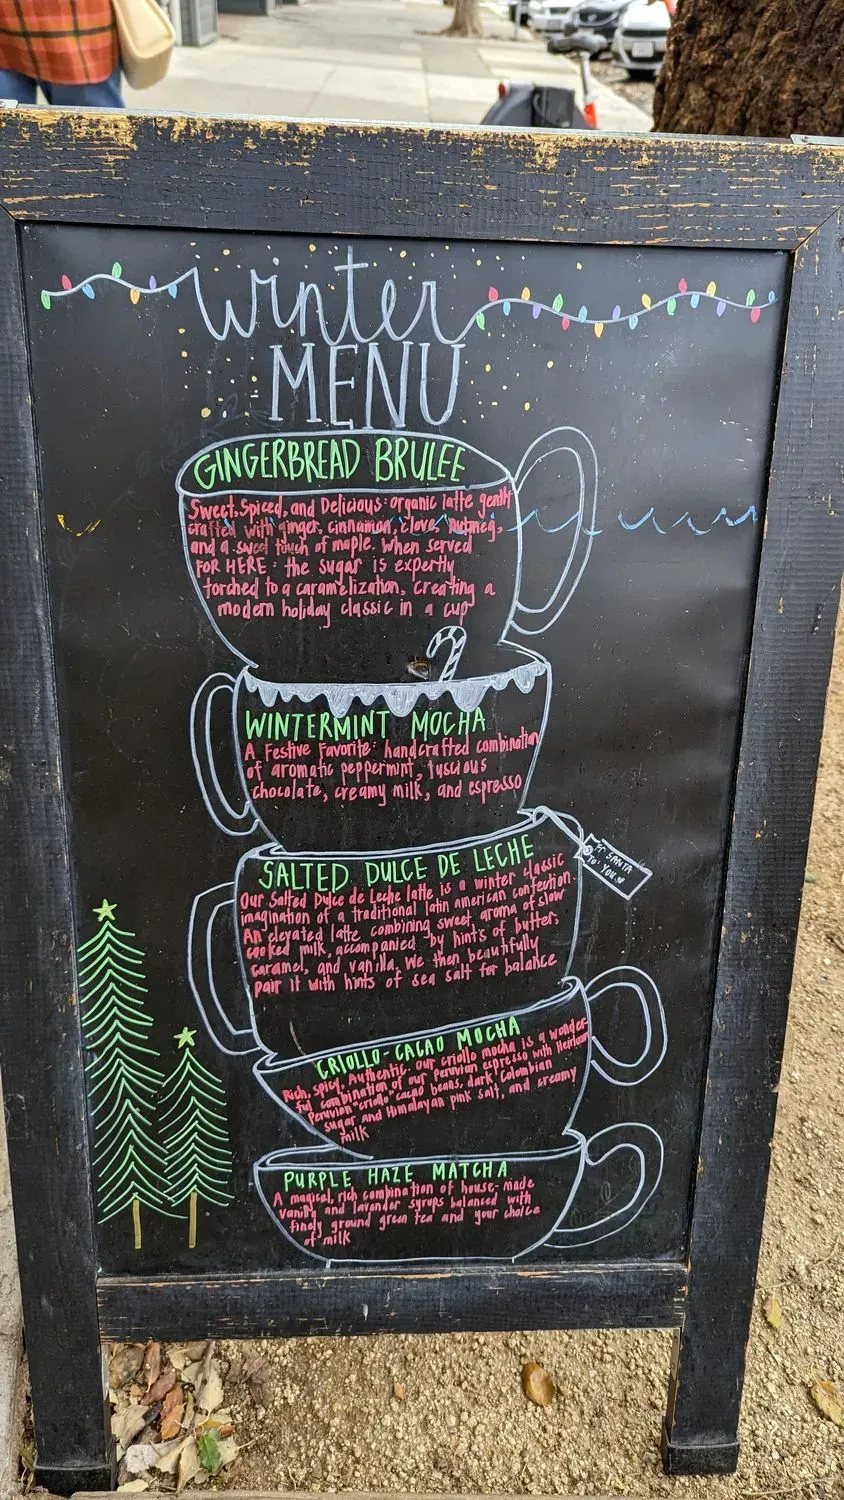 winter
MENU
GINGERBREAD BRULEE
Sweet, Spiced, and Delicious: organic latte gently
crafted with ginger, cinnamon, clove, nutmeg,
and a sweet touch of maple. When served
FOR HERE: the sugar is expertly
torched to a caramelization, creating a
modern holiday classic in a cup
WINTERMINT MOCHA
A Festive Favorite: handcrafted combination
of aromatic peppermint, luscious
chocolate, creamy milk, and espresso
Fr: SANTA
To: YOU
SALTED DULCE DE LECHE
Our Salted Dulce de Leche latte is a winter classic
imagination of a traditional latin american confection.
An elevated latte combining sweet aroma of slow
cooked milk, accompanied by hints of butter,
caramel, and vanilla. We then beautifully
pair it with hints of sea salt for balance
CRIOLLO-CACAO MOCHA
Rich, spicy, Authentic. Our criollo mocha is a wonder-
ful combination of our Peruvian espresso with Heirloom
Peruvian "criollo" cacao beans, dark Colombian
sugar and Himalayan pink salt, and creamy
milk
PURPLE HAZE MATCHA
A magical, rich combination of house-made
vanilla and lavender syrups balanced with
finely ground green tea and your choice
of milk